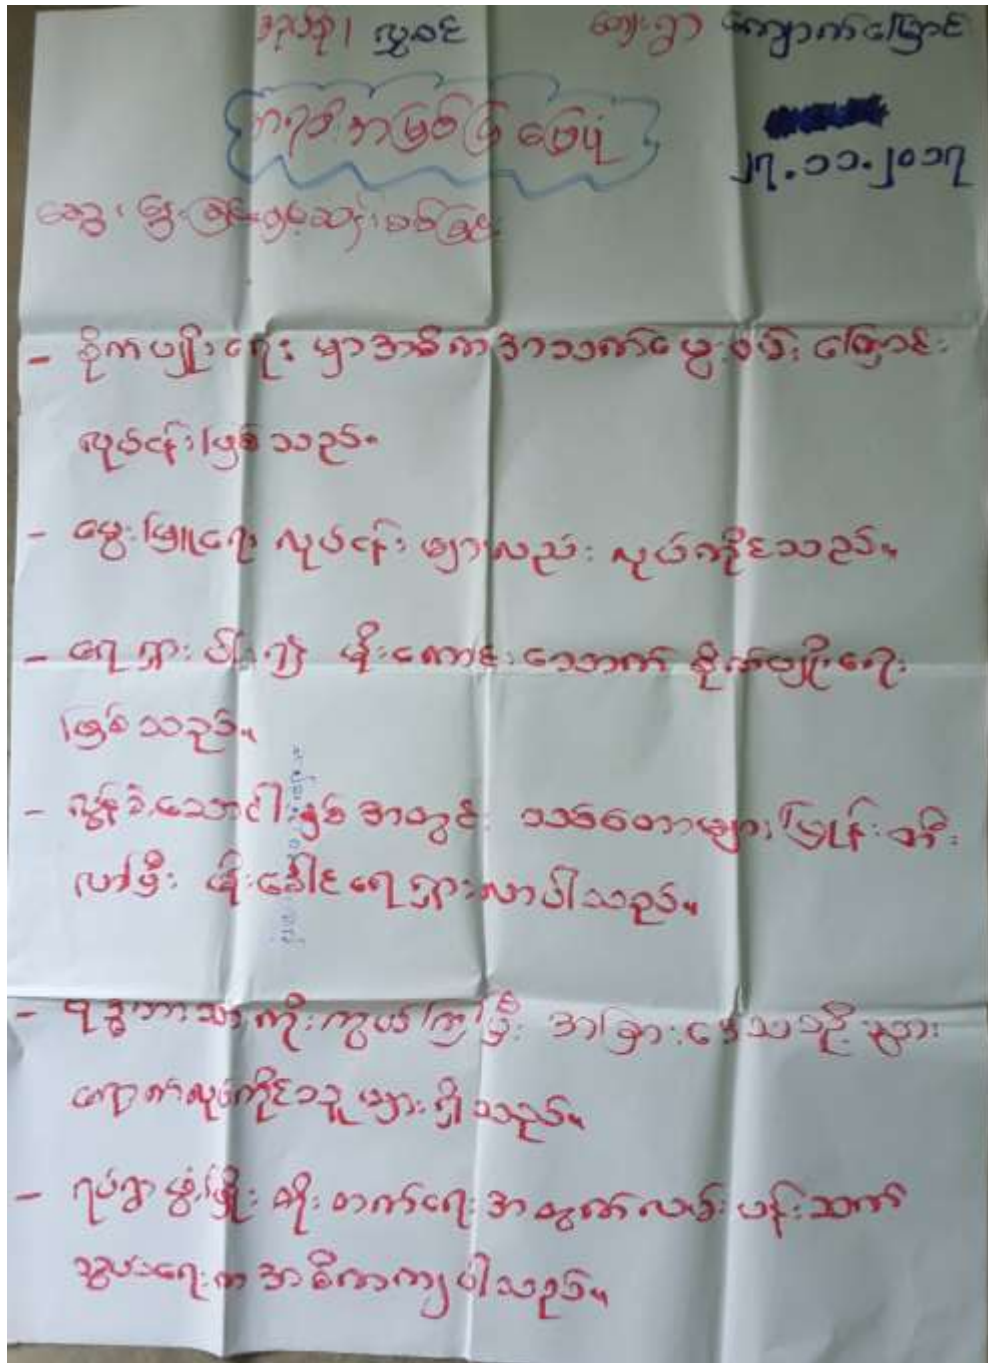 အုပ်စု၊ လွှဝင် ကျေးရွာ ကျောက်ကြောင်
ကရင်းအမြစ်ပြမြေပုံ
၂၇.၁၁.၂၀၁၇
ဆွေးနွေးခြင်းနှင့်ဆန်းစစ်ခြင်း
- စိုက်ပျိုးရေးမှာအဓိကအသက်မွေးဝမ်းကြောင်း
လုပ်ငန်းဖြစ်သည်။
- မွေးမြူရေးလုပ်ငန်းများလည်း လုပ်ကိုင်သည်။
- ရေရှားပါး၍ မိုးကောင်းသောက် စိုက်ပျိုးရေး
ဖြစ်သည်။
- လွန်ခဲ့သောငါးနှစ်အတွင်း သစ်တောများပြုန်းတီး
လာပြီး မိုးခေါင်ရေရှားလာပါသည်။
- ရွာကိုးကွယ်ကြပြီး အခြားဒေသသို့သွား
ရောက်လုပ်ကိုင်သူများရှိသည်။
- ရပ်ရွာဖွံ့ဖြိုးတိုးတက်ရေးအတွက်လမ်းပန်းဆက်
သွယ်ရေးကအဓိကကျပါသည်။